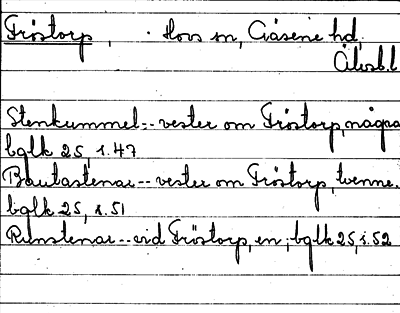 Fröstorp, Hovs sn, Gäsene hd,
Älvsb.l
Stenkummel -- vester om Fröstorp, några
bglk 25, s.47
Bautastenar -- vester om Fröstorp, tvenne.
bglk 25, s.51
Runstenar -- vid Fröstorp, en; bglk 25, s.52